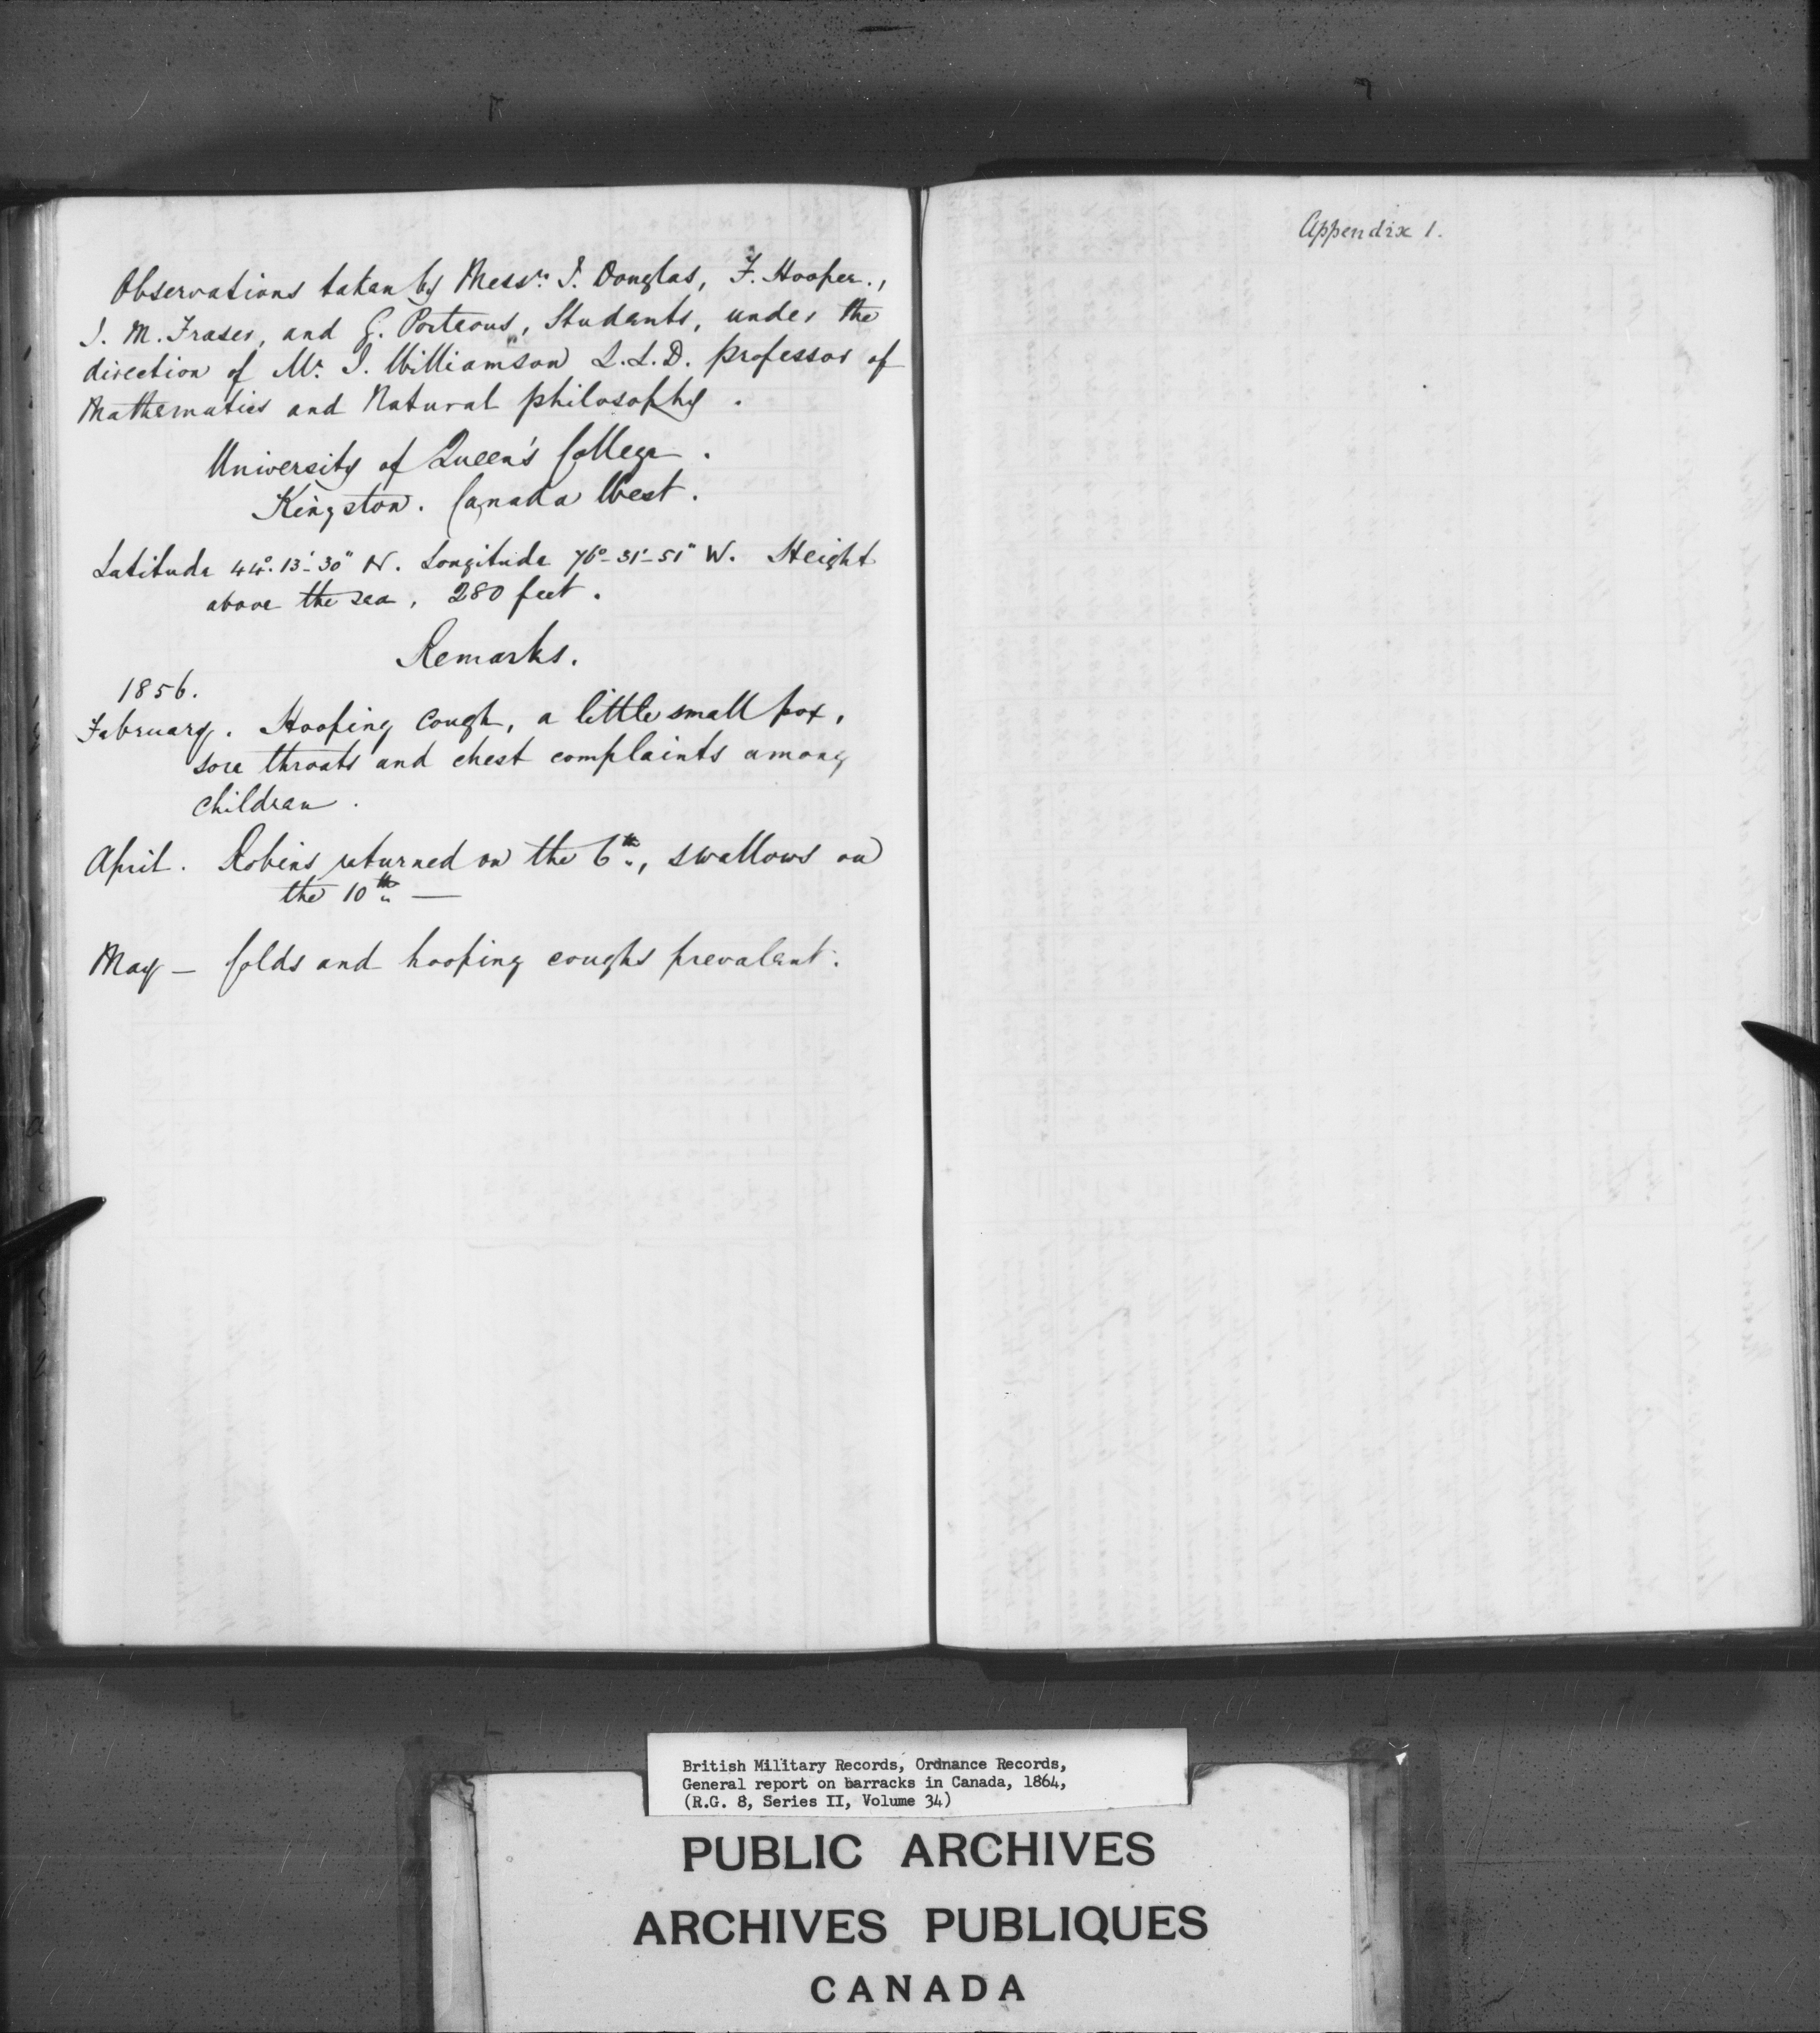 Observations taken by Messrs. J. Douglas, F. Hooper.,
J. M. Fraser, and G. Porteous, Students, under the
direction of Mr. J. Williamson L.L.D. professor of
Mathematics and Natural philosophy.
University of Queen's College.
Kingston. Canada West.
Latitude 44°.13'-30" N. Longitude 76°-31'-51" W. Height
above the sea, 280 feet.
Remarks.
1856.
February. Hooping Cough, a little small pox,
sore throats and chest complaints among
children.
April. Robins returned on the 6th, swallows on
the 10th —
May — Colds and hooping coughs prevalent.
Appendix 1.
British Military Records, Ordnance Records,
General report on barracks in Canada, 1864,
(R.G. 8, Series II, Volume 34)
PUBLIC ARCHIVES
ARCHIVES PUBLIQUES
CANADA